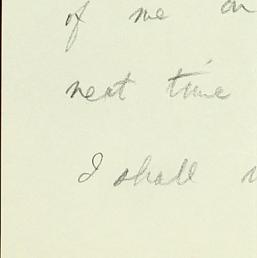 of me on
next time
I shall